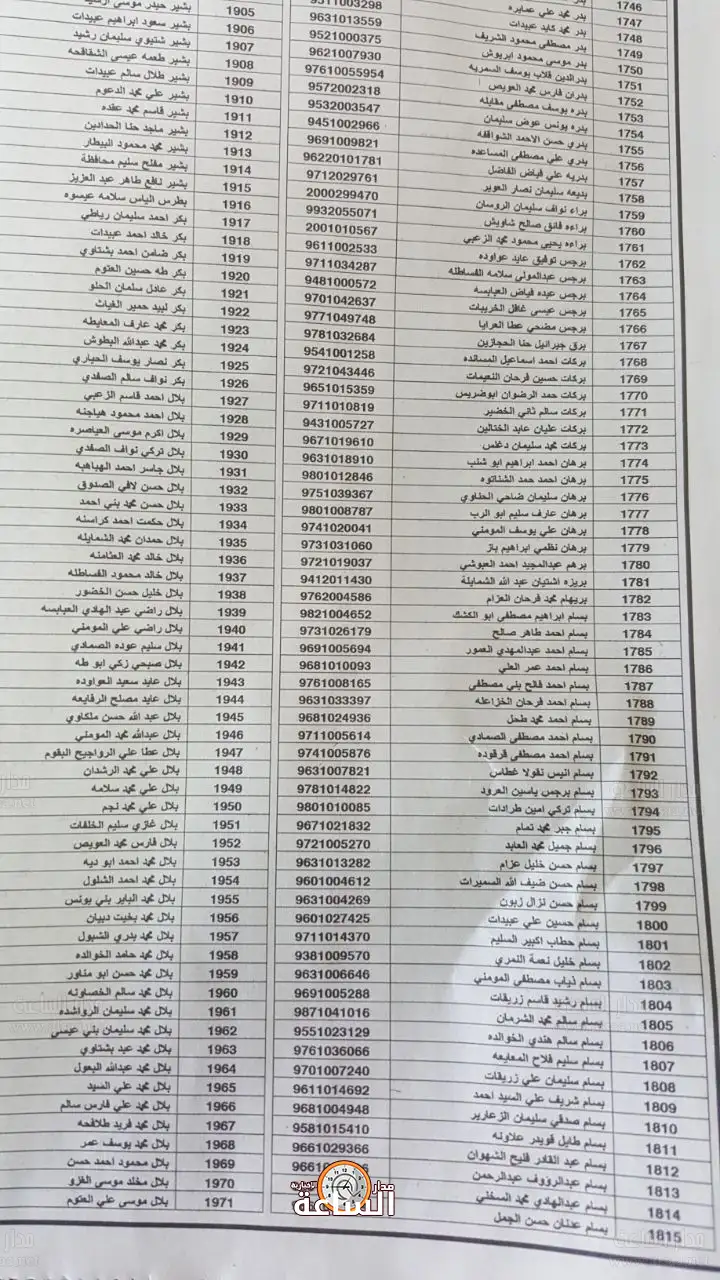 1746 بدر محمد علي عمايره 9511003298
1747 بدر محمد كايد عبيدات 9631013559
1748 بدر مصطفى محمود الشريف 9521000375
1749 بدر موسى محمود ابريوش 9621007930
1750 بدرالدين قلاب يوسف السمريه 97610055954
1751 بدران فارس محمد العويص 9572002318
1752 بدره يوسف مصطفى مقابله 9532003547
1753 بدره يونس عوض سليمان 9451002966
1754 بدري حسن الاحمد الشوافقه 9691009821
1755 بدري علي مصطفى المساعده 96220101781
1756 بدريه علي فياض الفاضل 9712029761
1757 بديعه سليمان نصار العوير 2000299470
1758 براء نواف سليمان الروسان 9932055071
1759 براءه فائق صالح شاويش 2001010567
1760 براءه يحيى محمود محمد الزعبي 9611002533
1761 برجس توفيق عايد عواوده 9711034287
1762 برجس عبدالمولى سلامه القساطله 9481000572
1763 برجس عبده فياض العبابسه 9701042637
1764 برجس عيسى غافل الخريبات 9771049748
1765 برجس مضحي عطا العرايا 9781032684
1766 برق جبرائيل حنا الحجازين 9541001258
1767 بركات احمد اسماعيل المسانده 9721043446
1768 بركات حسين فرحان النعيمات 9651015359
1769 بركات حمد الرضوان ابوضريس 9711010819
1770 بركات سالم ثاني الخضير 9431005727
1771 بركات عليان عابد الختالين 9671019610
1772 بركات محمد سليمان دغلس 9631018910
1773 برهان احمد ابراهيم ابو شنب 9801012846
1774 برهان احمد حمد الشناتوه 9751039367
1775 برهان سليمان ضاحي الحطاوي 9801008787
1776 برهان عارف سليم ابو الرب 9741020041
1777 برهان علي يوسف المومني 9731031060
1778 برهان نظمي ابراهيم باز 9721019037
1779 برهم عبدالمجيد احمد العبوشي 9412011430
1780 بريزه اشتيان عبد الله الشمايلة 9762004586
1781 بريهام محمد فرحان العزام 9821004652
1782 بسام ابراهيم مصطفى ابو الكشك 9731026179
1783 بسام احمد طاهر صالح 9691005694
1784 بسام احمد عبدالمهدي العمور 9681010093
1785 بسام احمد عمر العلي 9761008165
1786 بسام احمد فالح بني مصطفى 9631033397
1787 بسام احمد فرحان الخزاعله 9681024936
1788 بسام احمد محمد طحل 9711005614
1789 بسام احمد مصطفى الصمادي 9741005876
1790 بسام احمد مصطفى قرقوده 9631007821
1791 بسام انيس نقولا غطاس 9781014822
1792 بسام برجس ياسين العرود 9801010085
1793 بسام تركي امين طرادات 9671021832
1794 بسام جبر محمد تمام 9721005270
1795 بسام جميل محمد العابد 9631013282
1796 بسام حسن خليل عزام 9601004612
1797 بسام حسن ضيف الله السميرات 9631004269
1798 بسام حسن نزال زبون 9601027425
1799 بسام حسين علي عبيدات 9711014370
1800 بسام حطاب اكبير السليم 9381009570
1801 بسام خليل نعمة النمري 9631006646
1802 بسام ذياب مصطفى المومني 9691005288
1803 بسام رشيد قاسم زريقات 9871041016
1804 بسام سالم محمد الشرمان 9551023129
1805 بسام سالم هندي الخوالده 9761036066
1806 بسام سليم فلاح المعايعه 9701007240
1807 بسام سليمان علي زريقات 9611014692
1808 بسام شريف علي السيد احمد 9681004948
1809 بسام صدقي سليمان الزعارير 9581015410
1810 بسام طايل قويدر علاونه 9661029366
1811 بسام عبد القادر فليح الشهوان
1812 بسام عبدالرؤوف عبدالرحمن
1813 بسام عبدالهادي محمد المسخني
1814 بسام عدنان حسن الجمل
1815
1905 بشير حيدر موسى
1906 بشير سعود ابراهيم عبيدات
1907 بشير شتيوي سليمان رشيد
1908 بشير طعمه عيسى الشقافحه
1909 بشير طلال سالم عبيدات
1910 بشير علي محمد الدعوم
1911 بشير قاسم محمد عقده
1912 بشير ماجد حنا الحدادين
1913 بشير محمد محمود البيطار
1914 بشير مفلح سليم محافظة
1915 بشير نافع طاهر عبد العزيز
1916 بطرس الياس سلامه عيسوه
1917 بكر احمد سليمان رياطي
1918 بكر خالد احمد عبيدات
1919 بكر ضامن احمد بشتاوي
1920 بكر طه حسين العتوم
1921 بكر عادل سلمان الحلو
1922 بكر لبيد حمير الغياث
1923 بكر محمد عارف المعايطه
1924 بكر محمد عبدالله البطوش
1925 بكر نصار يوسف الحياري
1926 بكر نواف سالم الصفدي
1927 بلال احمد قاسم الزعبي
1928 بلال احمد محمود هياجنه
1929 بلال اكرم موسى العياصره
1930 بلال تركي نواف الصفدي
1931 بلال جاسر احمد الهباهبه
1932 بلال حسن لافي الصدوق
1933 بلال حسن محمد بني احمد
1934 بلال حكمت احمد كراسنه
1935 بلال حمدان محمد الشمايله
1936 بلال خالد محمد العثامنه
1937 بلال خالد محمود القساطله
1938 بلال خليل حسن الخضور
1939 بلال راضي عبد الهادي العبابسه
1940 بلال راضي علي المومني
1941 بلال سليم عوده الصمادي
1942 بلال صبحي زكي ابو طه
1943 بلال عايد سعيد العواوده
1944 بلال عايد مصلح الرفايعه
1945 بلال عبد الله حسن ملكاوي
1946 بلال عبدالله محمد المومني
1947 بلال عطا علي الرواجيح البقوم
1948 بلال علي محمد الرشدان
1949 بلال علي محمد سلامه
1950 بلال علي محمد نجم
1951 بلال غازي سليم الخلفات
1952 بلال فارس محمد العويص
1953 بلال محمد احمد ابو ديه
1954 بلال محمد احمد الشلول
1955 بلال محمد الباير بني يونس
1956 بلال محمد بخيت دبيان
1957 بلال محمد بدري الشبول
1958 بلال محمد حامد الخوالده
1959 بلال محمد حسن ابو مناور
1960 بلال محمد سالم الخصاونه
1961 بلال محمد سليمان الرواشده
1962 بلال محمد سليمان بني عيسى
1963 بلال محمد عبد بشتاوي
1964 بلال محمد عبدالله البعول
1965 بلال محمد علي السيد
1966 بلال محمد علي فارس سالم
1967 بلال محمد فريد طلافحه
1968 بلال محمد يوسف عمر
1969 بلال محمود احمد حسن
1970 بلال مخلد موسى الغزو
1971 بلال موسى علي العتوم
مدار الساعة
الإخبارية